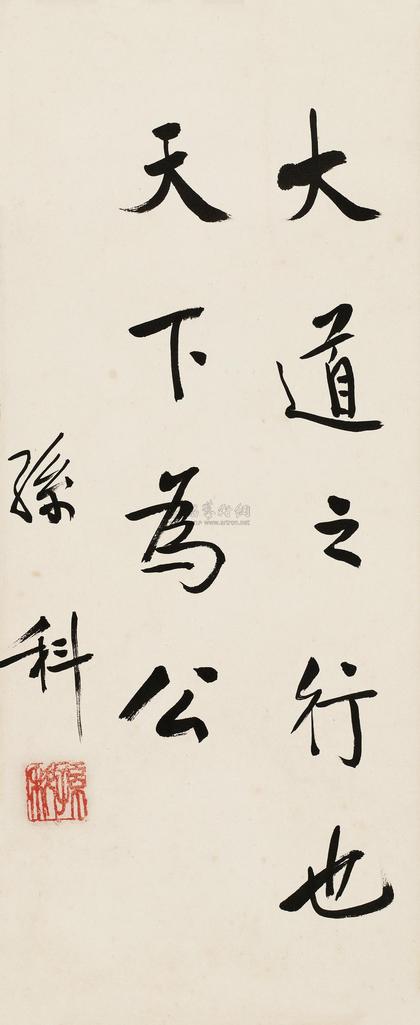 大道之行也
天下為公
孫科
www.artron.net